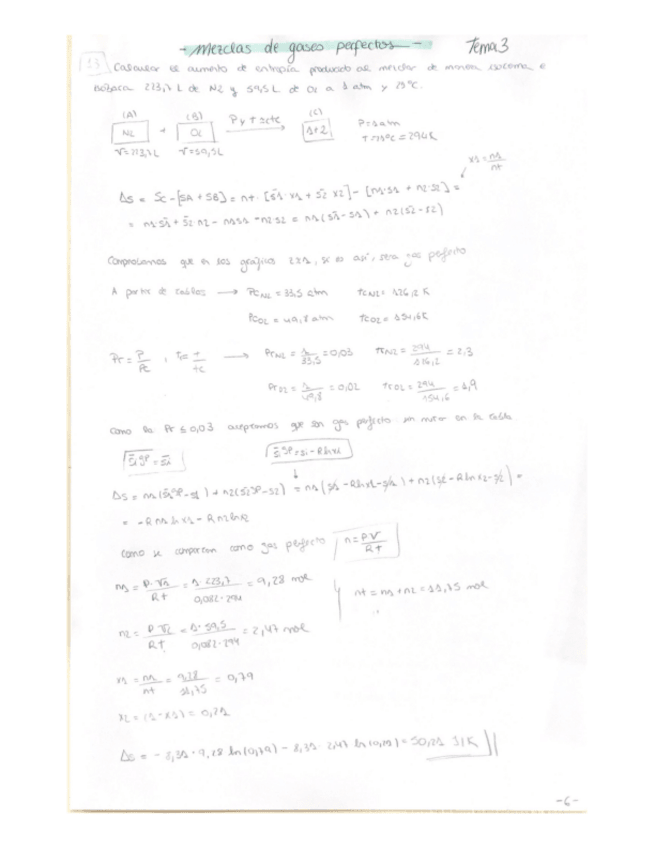 - Mezclas de gases perfectos - Tema 3
13 Calcular el aumento de entropía producido al mezclar de manera isoterma e
isobara 223,7 L de N2 y 59,5 L de O2 a 1 atm y 25°C.
(A) (B) (C)
N2 + O2 P y T = cte 1+2 P=1 atm
V=223,7L V=59,5L = 294K
x1 = n1/nt
Δs = Sc - [SA + SB] = nt · [s̄1 · x1 + s̄2 x2] - [n1·s1 + n2·s2] =
= n1·s̄1 + s̄2·n2 - n1s1 - n2·s2 = n1(s̄1 - s1) + n2(s̄2 - s2)
Comprobamos que en los gráficos z≈1, si es así, será gas perfecto
A partir de tablas → PcN2 = 33,5 atm TcN2 = 126,2 K
PcO2 = 49,8 atm TcO2 = 154,6K
Pr = P/Pc , Tr = T/Tc → PrN2 = 1/33,5 = 0,03 TrN2 = 294/126,2 = 2,3
PrO2 = 1/49,8 = 0,02 TrO2 = 294/154,6 = 1,9
Como la Pr ≤ 0,03 aceptamos que son gas perfecto sin mirar en la tabla
s̄i^gp = s̄i s̄i^gp = si - R ln xi
Δs = n1(s̄1^gp - s1) + n2(s̄2^gp - s2) = n1(s1 - R ln x1 - s1) + n2(s2 - R ln x2 - s2) =
= -R n1 ln x1 - R n2 ln x2
Como se comportan como gas perfecto n = PV/RT
n1 = P·V1/RT = 1·223,7/0,082·294 = 9,28 mol nt = n1 + n2 = 11,75 mol
n2 = P V2/RT = 1·59,5/0,082·294 = 2,47 mol
x1 = n1/nt = 9,28/11,75 = 0,79
x2 = (1 - x1) = 0,21
Δs = - 8,31 · 9,28 ln(0,79) - 8,31 · 2,47 ln(0,21) = 50,21 J/K
-6-